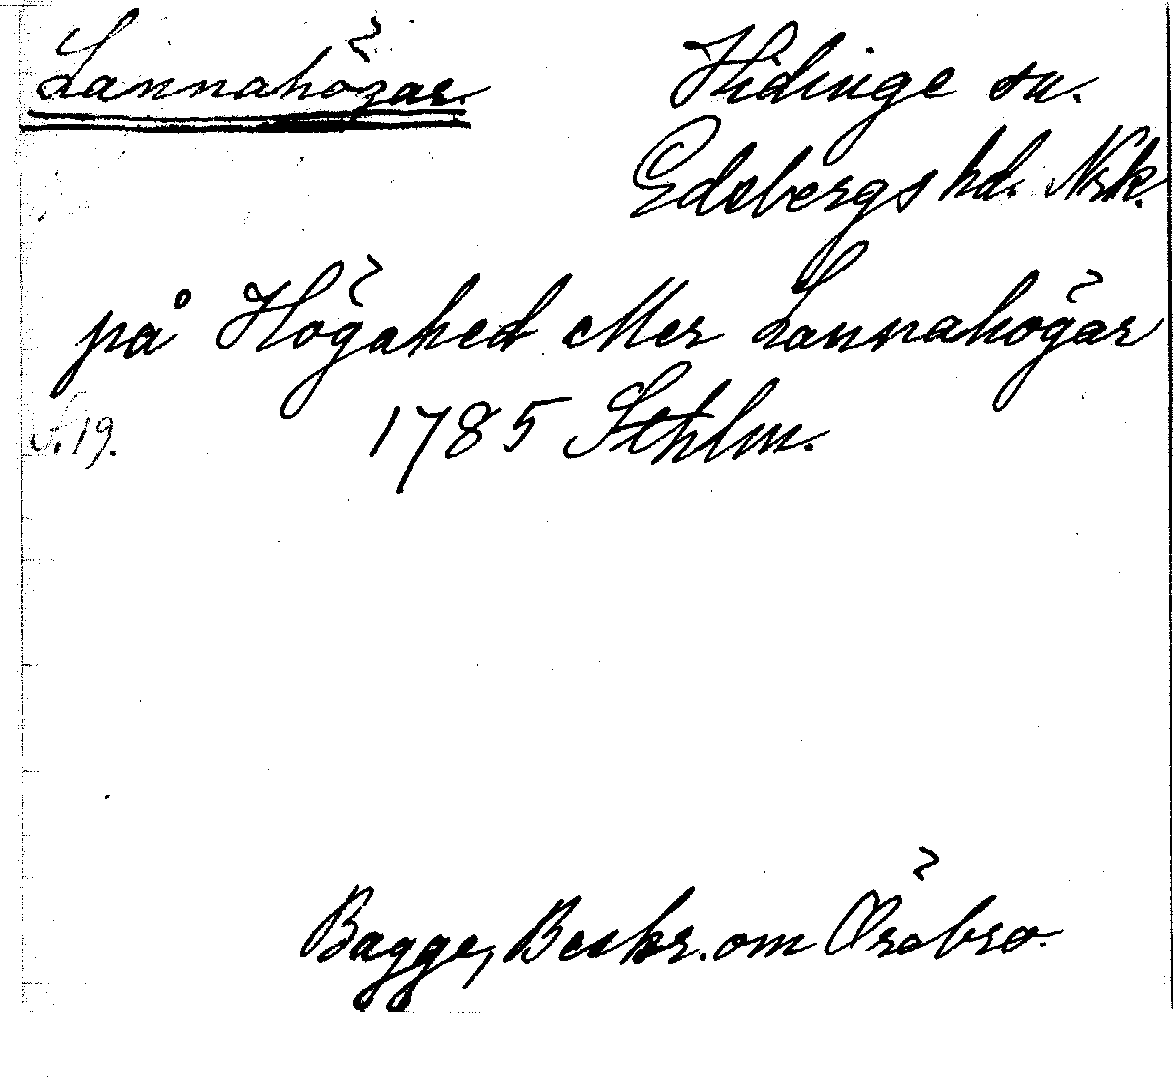 Lannahögar Hidinge sn.
Edsbergs hd. Nrk.
på Högahed eller Lannahögar
s. 19. 1785 Sthlm.
Bagge, Beskr. om Örebro.